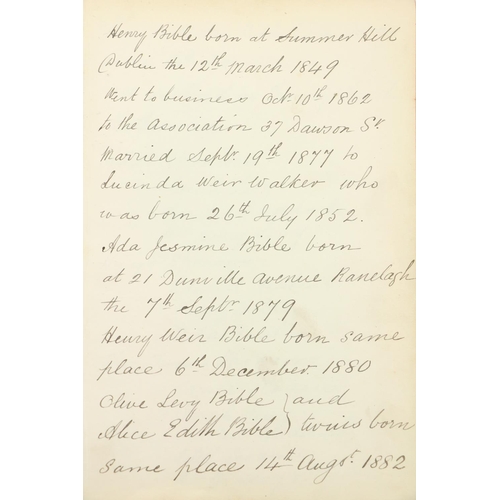 Henry Bible born at Summer Hill
Dublin the 12th March 1849
Went to business Octr. 10th 1862
to the Association 37 Dawson St.
Married Septr. 19th 1877 to
Lucinda Weir Walker who
was born 26th July 1852.
Ada Jesmine Bible born
at 21 Dunville Avenue Ranelagh
the 7th Septr 1879
Henry Weir Bible born same
place 6th December 1880
Clive Levy Bible } and
Alice Edith Bible } twins born
same place 14th Augst. 1882